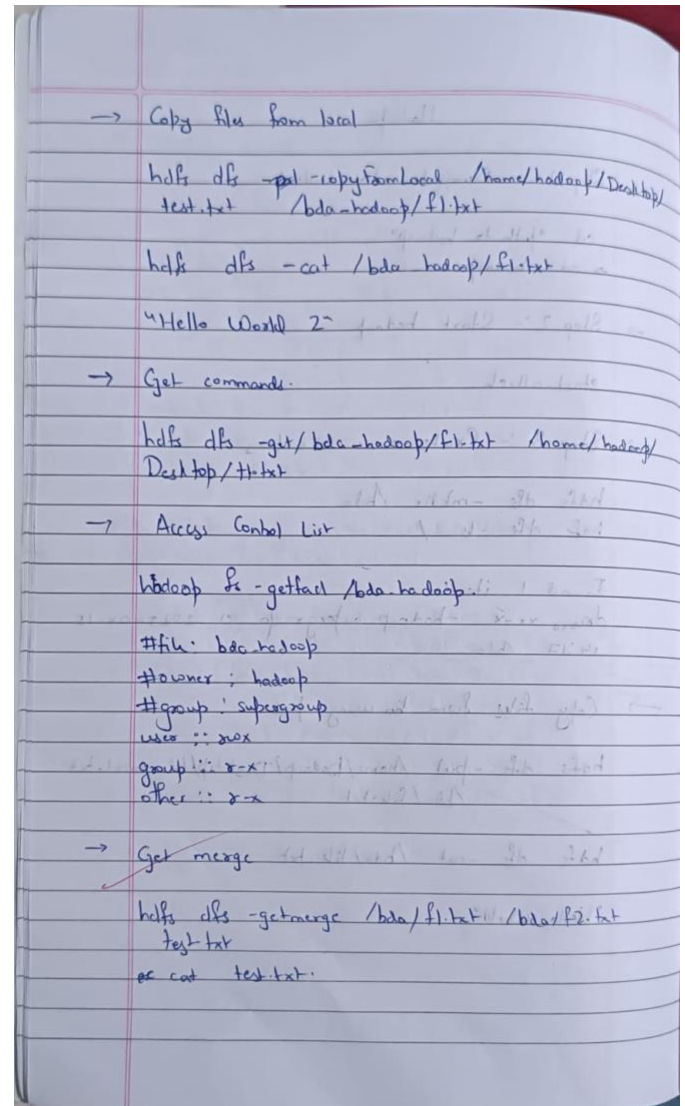 → Copy files from local
hdfs dfs -copyFromLocal /home/hadoop/Desktop/
test.txt /bda_hadoop/f1.txt
hdfs dfs -cat /bda hadoop/f1.txt
"Hello World 2"
→ Get commands.
hdfs dfs -get/bda_hadoop/f1.txt /home/hadoop/
Desktop/t1.txt
→ Access Control List
hadoop fs -getfacl /bda_hadoop.
#file: bda_hadoop
#owner : hadoop
#group : supergroup
user :: rwx
group :: r-x
other :: r-x
→ Get merge
hdfs dfs -getmerge /bda/f1.txt /bda/f2.txt
test.txt
cat test.txt.